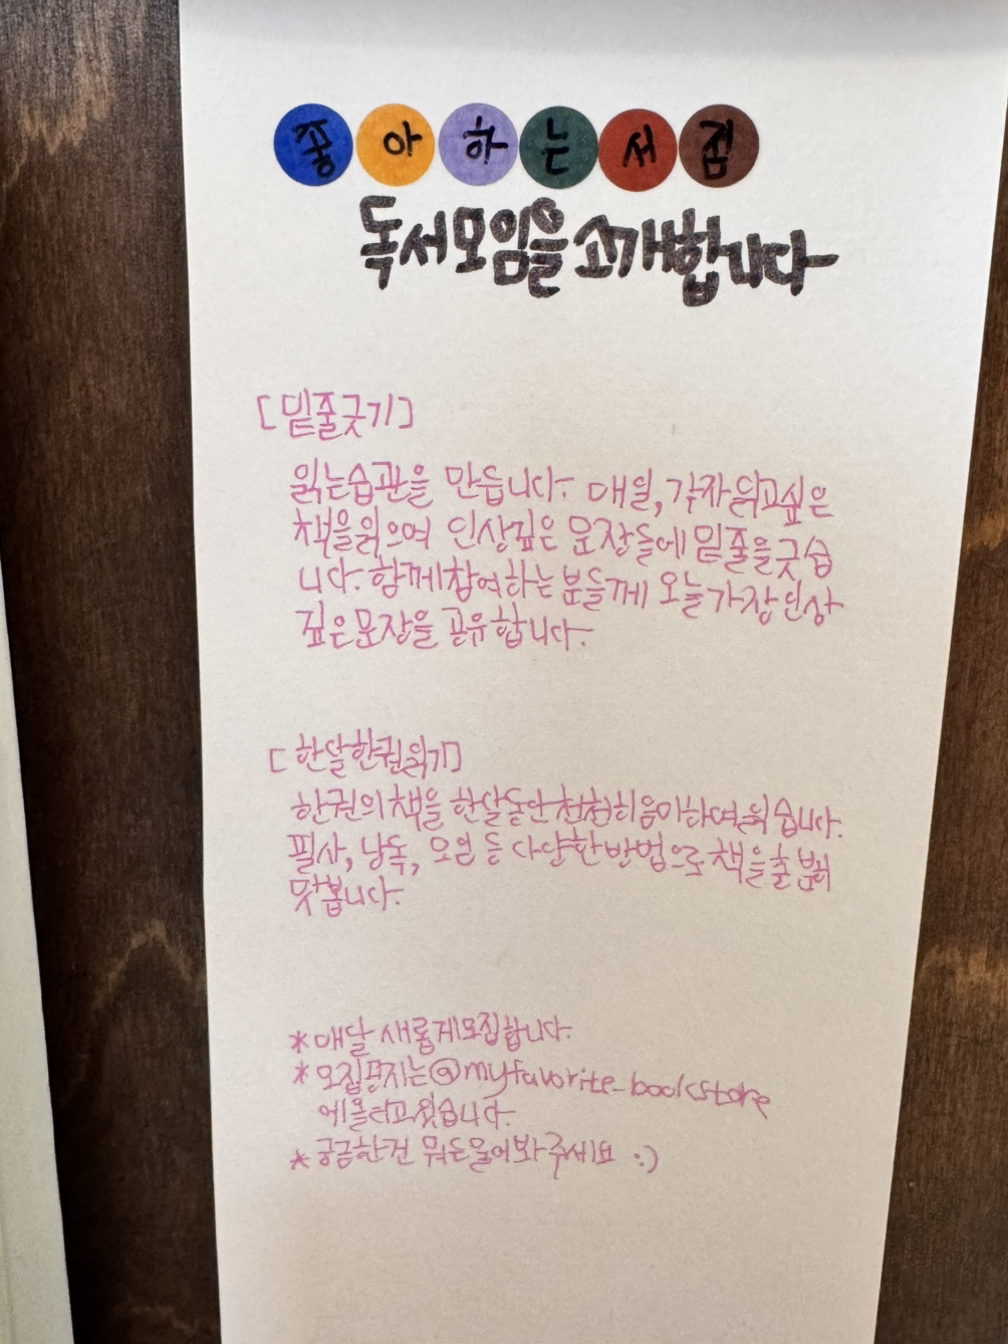 좋아하는서점
독서모임을 소개합니다
[밑줄긋기]
읽는습관을 만듭니다. 매일, 각자읽고싶은
책을읽으며 인상깊은 문장들에 밑줄을 긋습
니다. 함께참여하는 분들께 오늘 가장 인상
깊은문장을 공유합니다.
[한달한권읽기]
한권의 책을 한달동안 천천히음미하며읽습니다.
필사, 낭독, 모임 등 다양한 방법으로 책을
맛봅니다.
*매달 새롭게모집합니다.
*모집공지는@myfavorite_bookstore
에올리고있습니다.
*궁금한건 뭐든물어봐주세요 :)